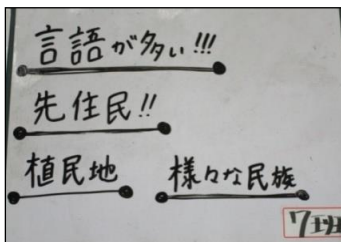 言語が多い!!!
先住民!!
植民地 様々な民族
7班